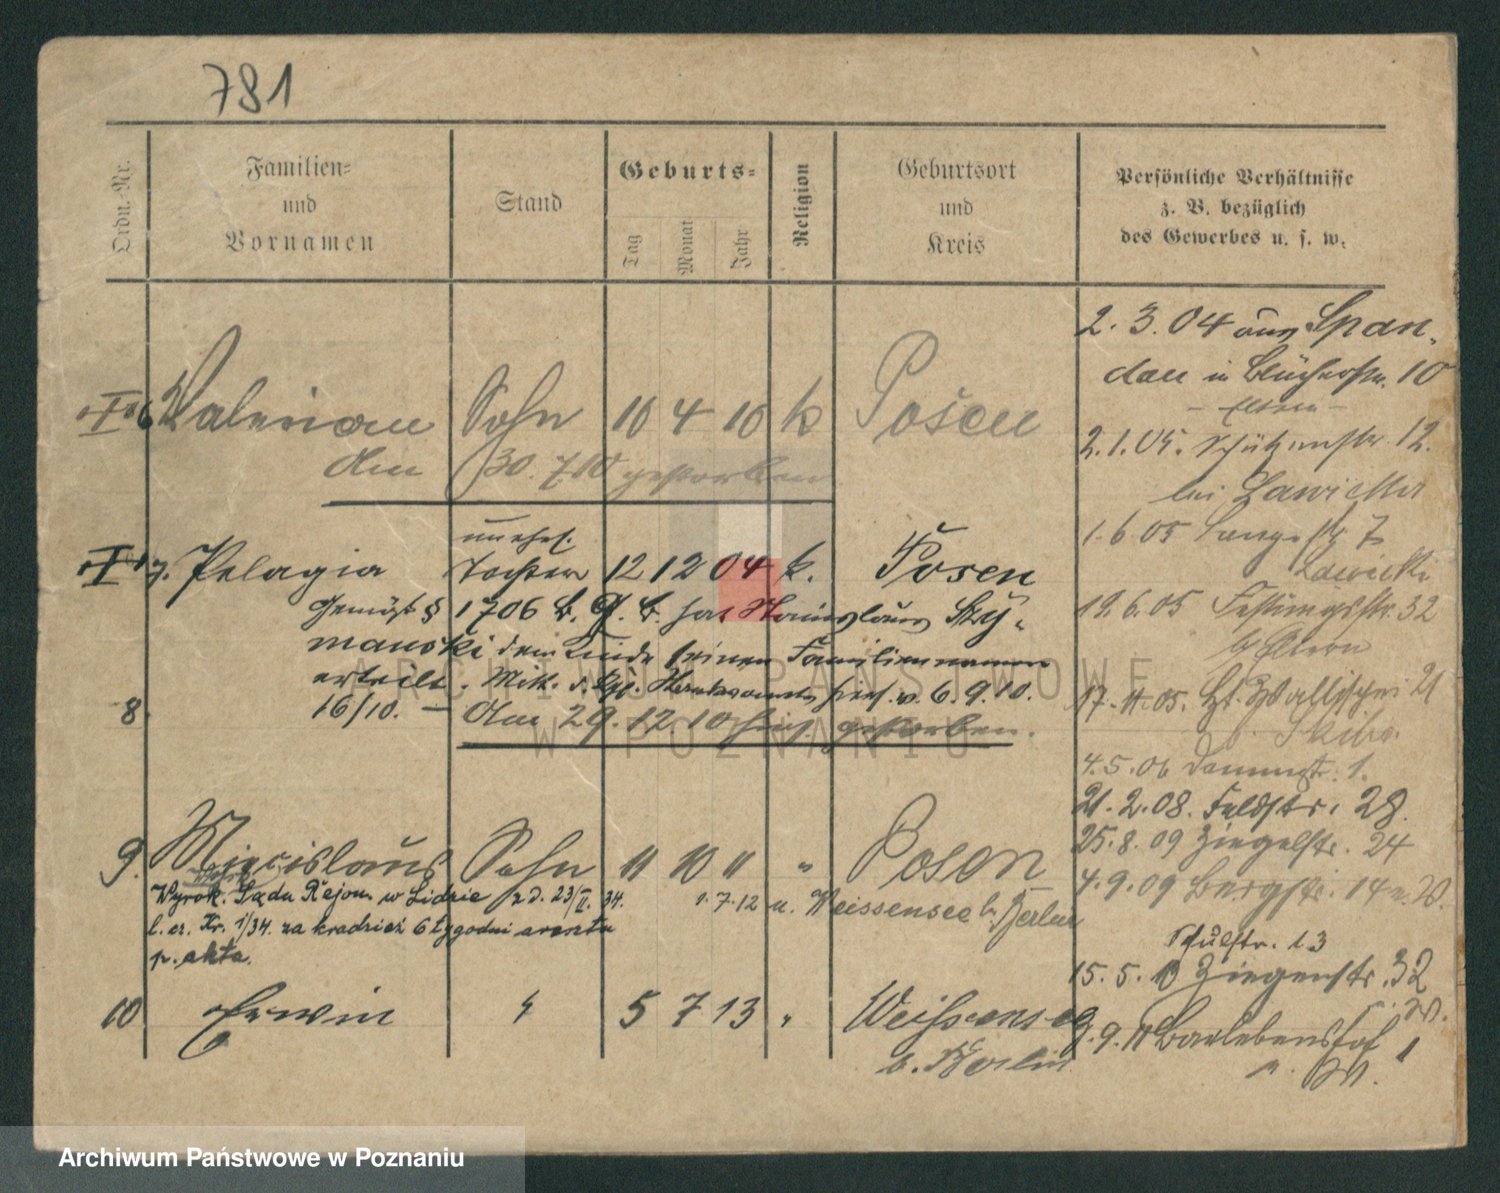 781
Ordn.-Nr.
Familien-
und
Vornamen
Stand
Geburts-
Tag
Monat
Jahr
Religion
Geburtsort
und
Kreis
Persönliche Verhältnisse
z. B. bezüglich
des Gewerbes u. s. w.
6 Valerian Sohn 10 4 10 k Posen
am 30.7.10 gestorben
unehel.
7. Pelagia Tochter 12 12 04 k. Posen
Gemäß § 1706 B. G. B. hat Stanislaus Szy-
manski dem Kinde seinen Familiennamen
erteilt. Mitt. d. Kgl. Standesamts hier v. 6.9.10.
16/10. — Am 29.12.10 hier gestorben.
8
9. Miecislaus Sohn 11 10 11 " Posen
Wyrok. Sądu Rejon. w Lidzie z d. 23/II. 34. 1.7.12 n. Weissensee b. Berlin
l. cz. Kr. 1/34. za kradzież 6 tygodni aresztu
p. akta.
10 Erwin " 5 7 13 " Weissensee
b. Berlin
2.3.04 aus Span-
dau in Blücherstr. 10
Eltern
2.1.05. Schützenstr. 12.
bei Lawicki
1.6.05 Langestr 7
Lawicki
19.6.05 Festungsstr. 32
b. Eltern
17.11.05. Wallischei 21
b. Skiba.
4.5.06 Dammstr. 1.
21.2.08. Feldstr. 28.
25.8.09 Ziegelstr. 24
4.9.09 Bergstr. 14 n. W.
Schulstr. 13
15.5.10 Ziegenstr. 32
n. W.
9.11 Barlebenshof 1
n. W.
ARCHIWUM PAŃSTWOWE
W POZNANIU
Archiwum Państwowe w Poznaniu